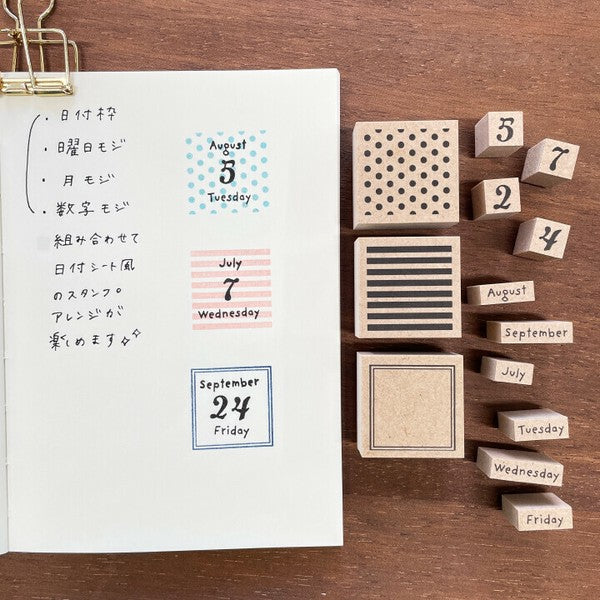 ・日付枠
・曜日モジ
・月モジ
・数字モジ
組み合わせて
日付シート風
のスタンプ。
アレンジが
楽しめます
August
5
Tuesday
July
7
Wednesday
September
24
Friday
5
7
2
4
August
September
July
Tuesday
Wednesday
Friday